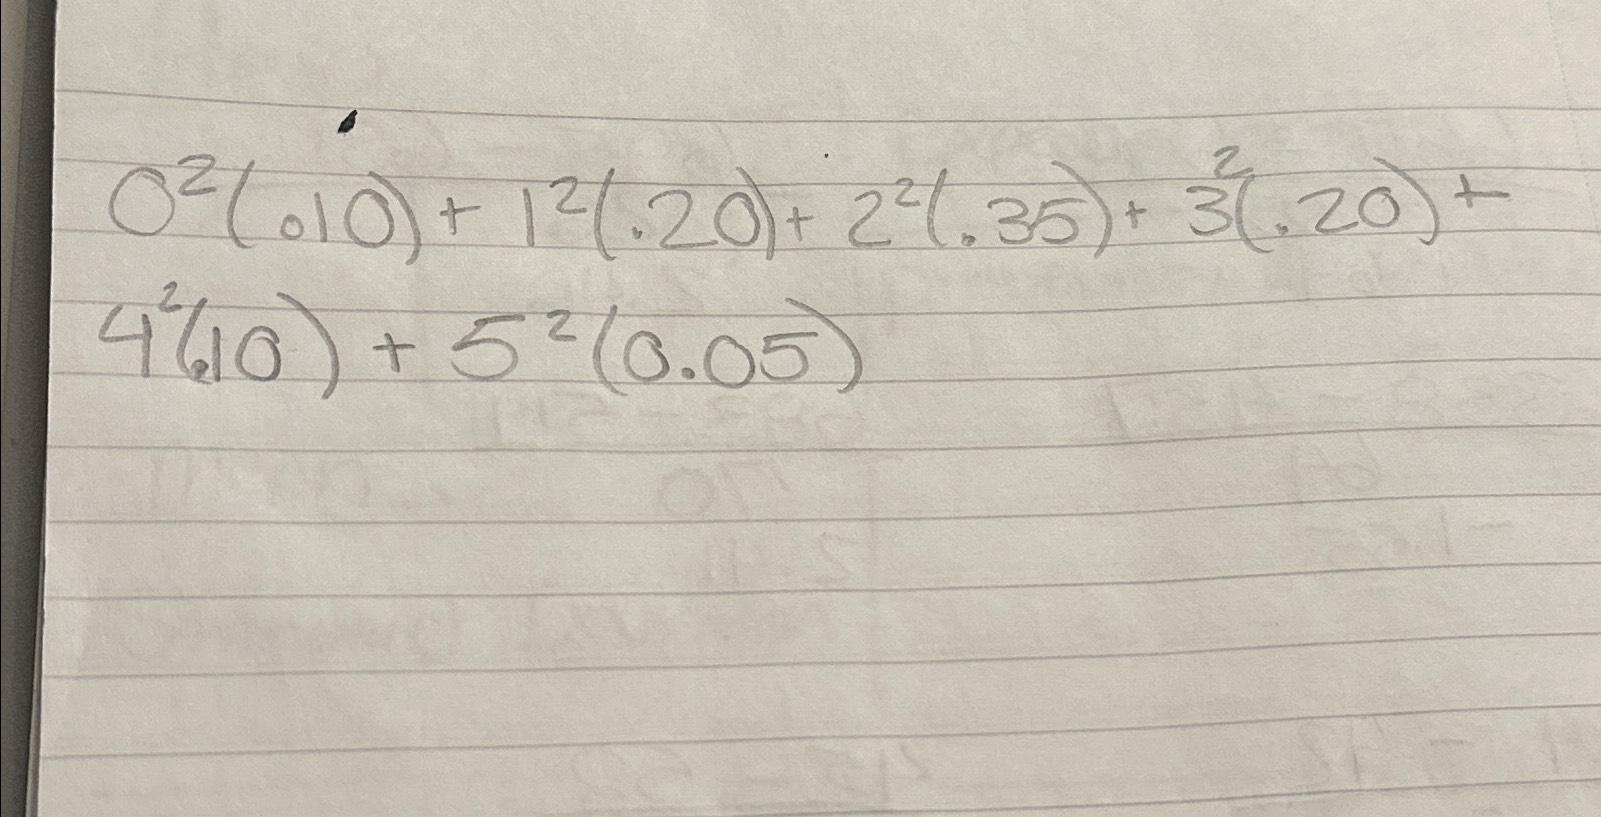 0²(.10) + 1²(.20) + 2²(.35) + 3²(.20) +
4²(.10) + 5²(0.05)